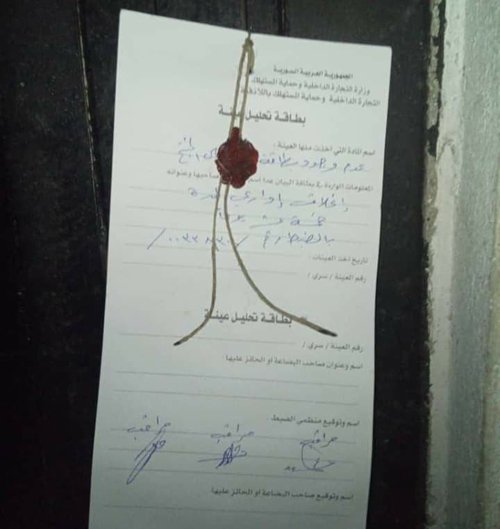 الجمهورية العربية السورية
وزارة التجارة الداخلية وحماية المستهلك
التجارة الداخلية وحماية المستهلك باللاذقية
بطاقة تحليل عينة
اسم المادة التي اخذت منها العينة :
عدم وجود
المعلومات الواردة في بطاقة البيان عدا اسم صاحبها وعنوانه
إغلاق إداري لمدة
خمسة عشر يوماً
بالضبط رقم
تاريخ اخذ العينات :
رقم العينة / سري /
بطاقة تحليل عينة
رقم العينة / سري /
اسم وعنوان صاحب البضاعة او الحائز عليها :
اسم وتوقيع منظمي الضبط
مراقب مراقب مراقب
اسم وتوقيع صاحب البضاعة او الحائز عليها